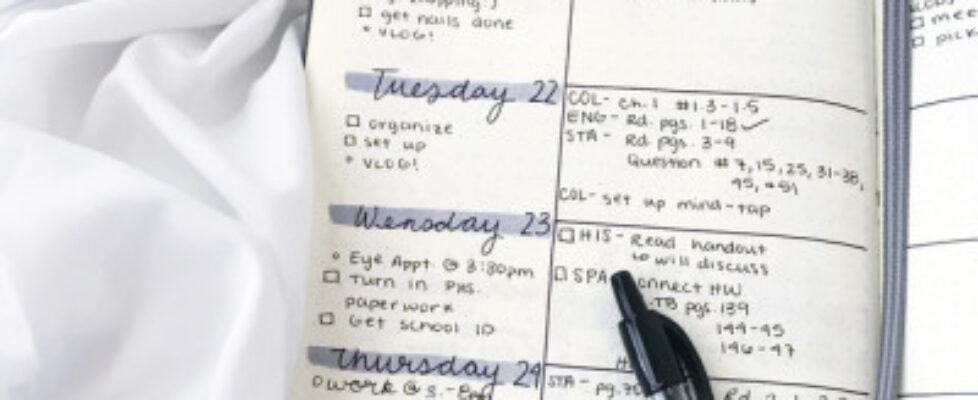 get nails done
* VLOG!
Tuesday 22
organize
set up
* VLOG!
COL- Ch. 1 #1.3-1.5
ENG- Rd. pgs. 1-18 ✓
STA- Rd. pgs. 3-9
Question # 7, 15, 25, 31-38,
45, +51
COL- set up mind-tap
Wensday 23
Eye Appt. @ 3:30pm
Turn in PHS.
paperwork
Get school ID
HIS- Read handout
will discuss
SPA
onnect HW
TB pgs. 139
144-45
146-47
Thursday 24
work @ 3.-
STA- pg.
Rd.
mee
pick